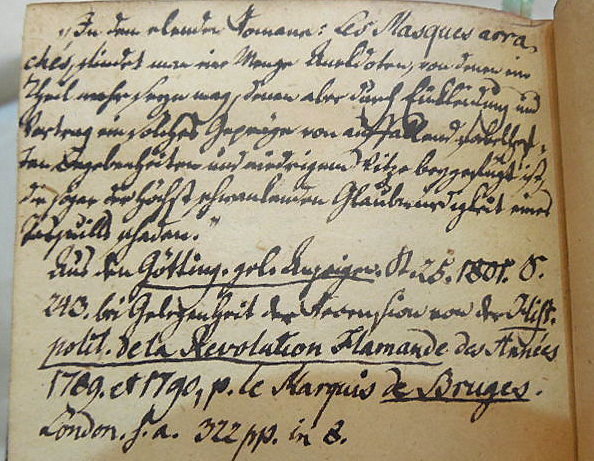 „In dem elenden Romane: Les Masques arra-
chés, findet man eine Menge Anekdoten, von denen ein
Theil wahr seyn mag, denen aber durch Einkleidung und
Vortrag ein solches Gepräge von auffallend fabelhaf-
ten Begebenheiten und niedrigem Witze beygefügt ist,
die sogar der höchst schwankenden Glaubwürdigkeit eines
Pasquills schaden."
Aus den Götting. gel. Anzeigen. St. 25. 1801. S.
243. bei Gelegenheit der Recension von der Hist.
polit. de la Revolution Flamande des Années
1789. et 1790, p. le Marquis de Bruges.
London. s. a. 322 pp. in 8.